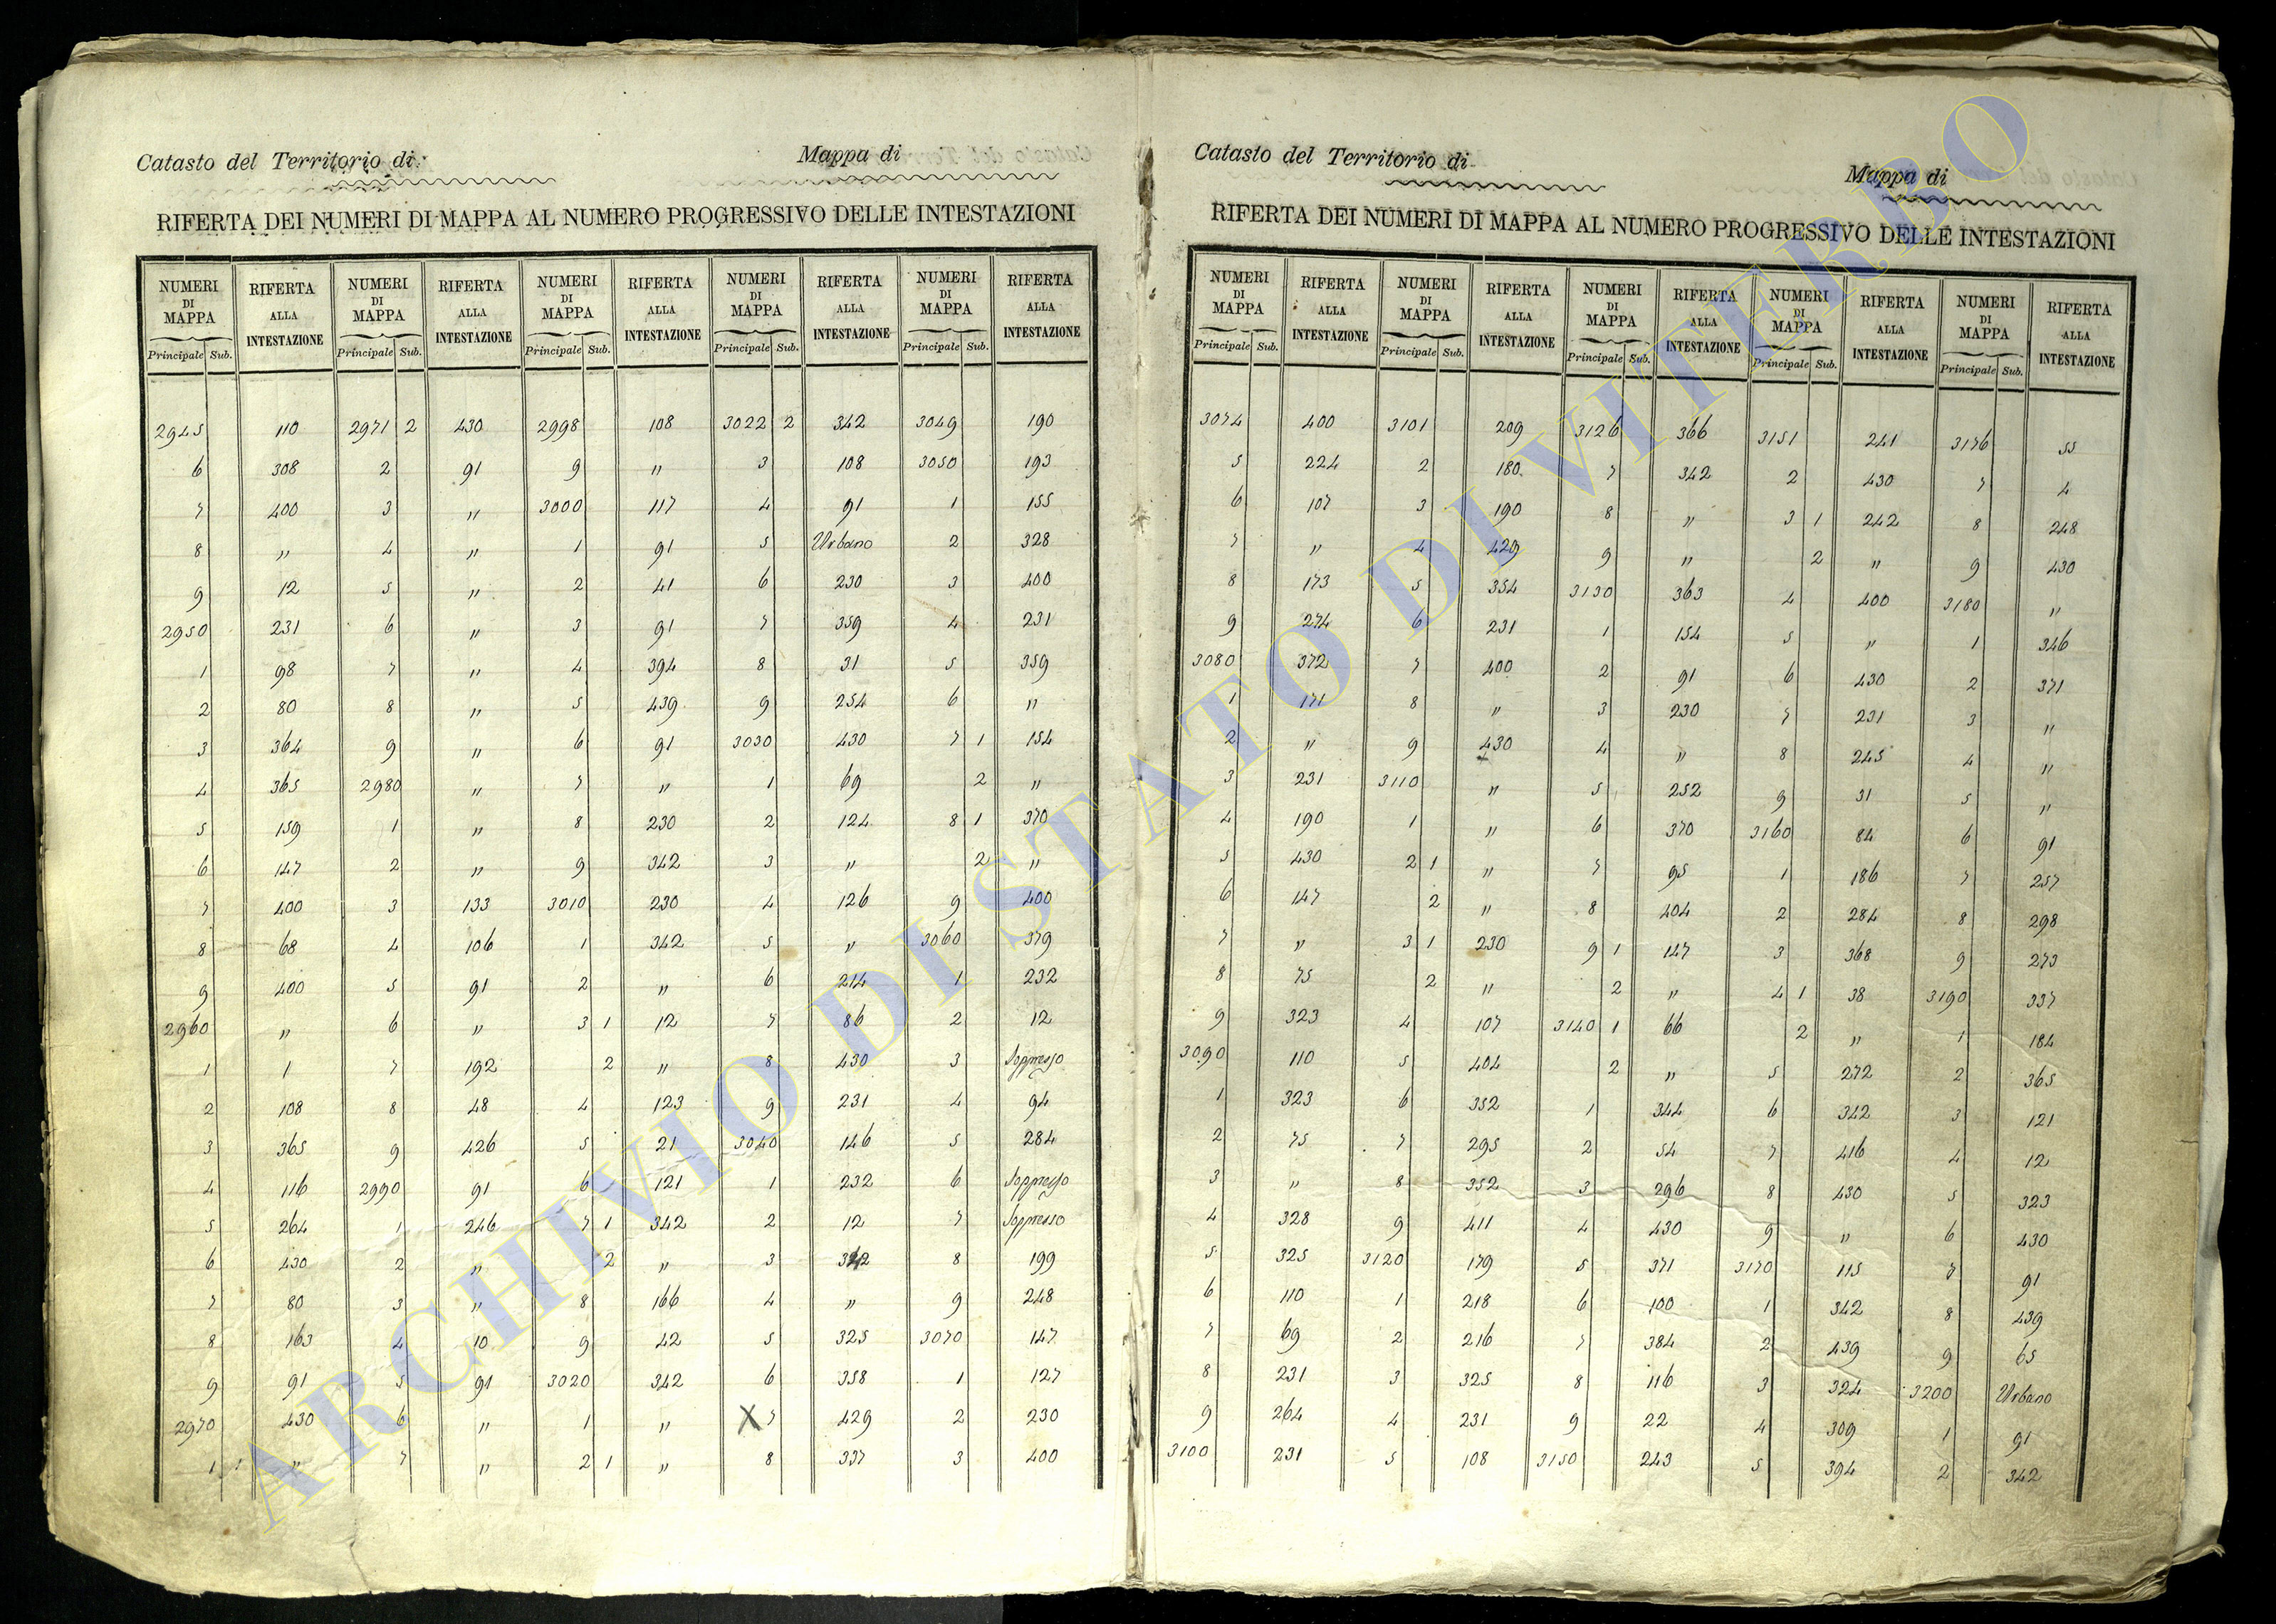 Catasto del Territorio di Mappa di
RIFERTA DEI NUMERI DI MAPPA AL NUMERO PROGRESSIVO DELLE INTESTAZIONI
NUMERI RIFERTA NUMERI RIFERTA NUMERI RIFERTA NUMERI RIFERTA NUMERI RIFERTA
DI ALLA DI ALLA DI ALLA DI ALLA DI ALLA
MAPPA INTESTAZIONE MAPPA INTESTAZIONE MAPPA INTESTAZIONE MAPPA INTESTAZIONE MAPPA INTESTAZIONE
Principale Sub. Principale Sub. Principale Sub. Principale Sub. Principale Sub.
2945 110 2971 2 430 2998 108 3022 2 342 3049 190
6 308 2 91 9 " 3 108 3050 193
7 400 3 " 3000 117 4 91 1 155
8 " 4 " 1 91 5 Urbano 2 328
9 12 5 " 2 41 6 230 3 400
2950 231 6 " 3 91 7 359 4 231
1 98 7 " 4 394 8 31 5 359
2 80 8 " 5 439 9 254 6 "
3 364 9 " 6 91 3030 430 7 1 154
4 365 2980 " 7 " 1 69 2 "
5 159 1 " 8 230 2 124 8 1 370
6 147 2 " 9 342 3 " 2 "
7 400 3 133 3010 230 4 126 9 400
8 68 4 106 1 342 5 " 3060 379
9 400 5 91 2 " 6 214 1 232
2960 " 6 " 3 1 12 7 86 2 12
1 1 7 192 2 " 8 430 3 Soppresso
2 108 8 48 4 123 9 231 4 94
3 365 9 426 5 21 3040 146 5 284
4 116 2990 91 6 121 1 232 6 Soppresso
5 264 1 246 7 1 342 2 12 7 Soppresso
6 430 2 " 2 " 3 342 8 199
7 80 3 " 8 166 4 " 9 248
8 163 4 10 9 42 5 325 3070 147
9 91 5 91 3020 342 6 358 1 127
2970 430 6 " 1 " X 7 429 2 230
1 1 " 7 " 2 1 " 8 337 3 400
Catasto del Territorio di Mappa di
RIFERTA DEI NUMERI DI MAPPA AL NUMERO PROGRESSIVO DELLE INTESTAZIONI
NUMERI RIFERTA NUMERI RIFERTA NUMERI RIFERTA NUMERI RIFERTA NUMERI RIFERTA
DI ALLA DI ALLA DI ALLA DI ALLA DI ALLA
MAPPA INTESTAZIONE MAPPA INTESTAZIONE MAPPA INTESTAZIONE MAPPA INTESTAZIONE MAPPA INTESTAZIONE
Principale Sub. Principale Sub. Principale Sub. Principale Sub. Principale Sub.
3074 400 3101 209 3126 366 3151 241 3176 55
5 224 2 180 7 342 2 430 7 4
6 107 3 190 8 " 3 1 242 8 248
7 " 4 429 9 " 2 " 9 430
8 173 5 354 3130 363 4 400 3180 "
9 274 6 231 1 154 5 " 1 346
3080 372 7 400 2 91 6 430 2 371
1 171 8 " 3 230 7 231 3 "
2 " 9 430 4 " 8 245 4 "
3 231 3110 " 5 252 9 31 5 "
4 190 1 " 6 370 3160 84 6 91
5 430 2 1 " 7 95 1 186 7 257
6 147 2 " 8 404 2 284 8 298
7 " 3 1 230 9 1 147 3 368 9 273
8 75 2 " 2 " 4 1 38 3190 337
9 323 4 107 3140 1 66 2 " 1 184
3090 110 5 404 2 " 5 272 2 365
1 323 6 352 1 344 6 342 3 121
2 75 7 295 2 54 7 416 4 12
3 " 8 352 3 296 8 430 5 323
4 328 9 411 4 430 9 " 6 430
5 325 3120 179 5 371 3170 115 7 91
6 110 1 218 6 100 1 342 8 439
7 69 2 216 7 384 2 439 9 65
8 231 3 325 8 116 3 324 3200 Urbano
9 264 4 231 9 22 4 309 1 91
3100 231 5 108 3150 243 5 394 2 342
ARCHIVIO DI STATO DI VITERBO